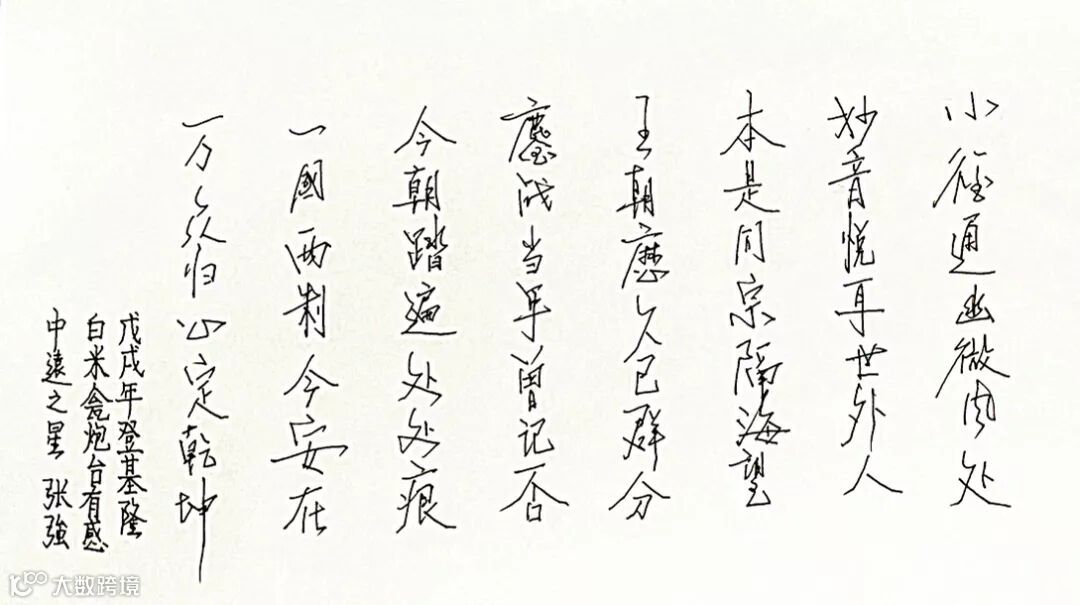 小徑通幽微处
妙音悦耳世外人
本是同宗隔海望
王朝歷久已群分
鏖战当年曾记否
今朝踏遍处处痕
一國两制今安在
万众归心定乾坤
戊戌年登基隆
白米瓮炮台有感
中遠之星 张強
大数跨境